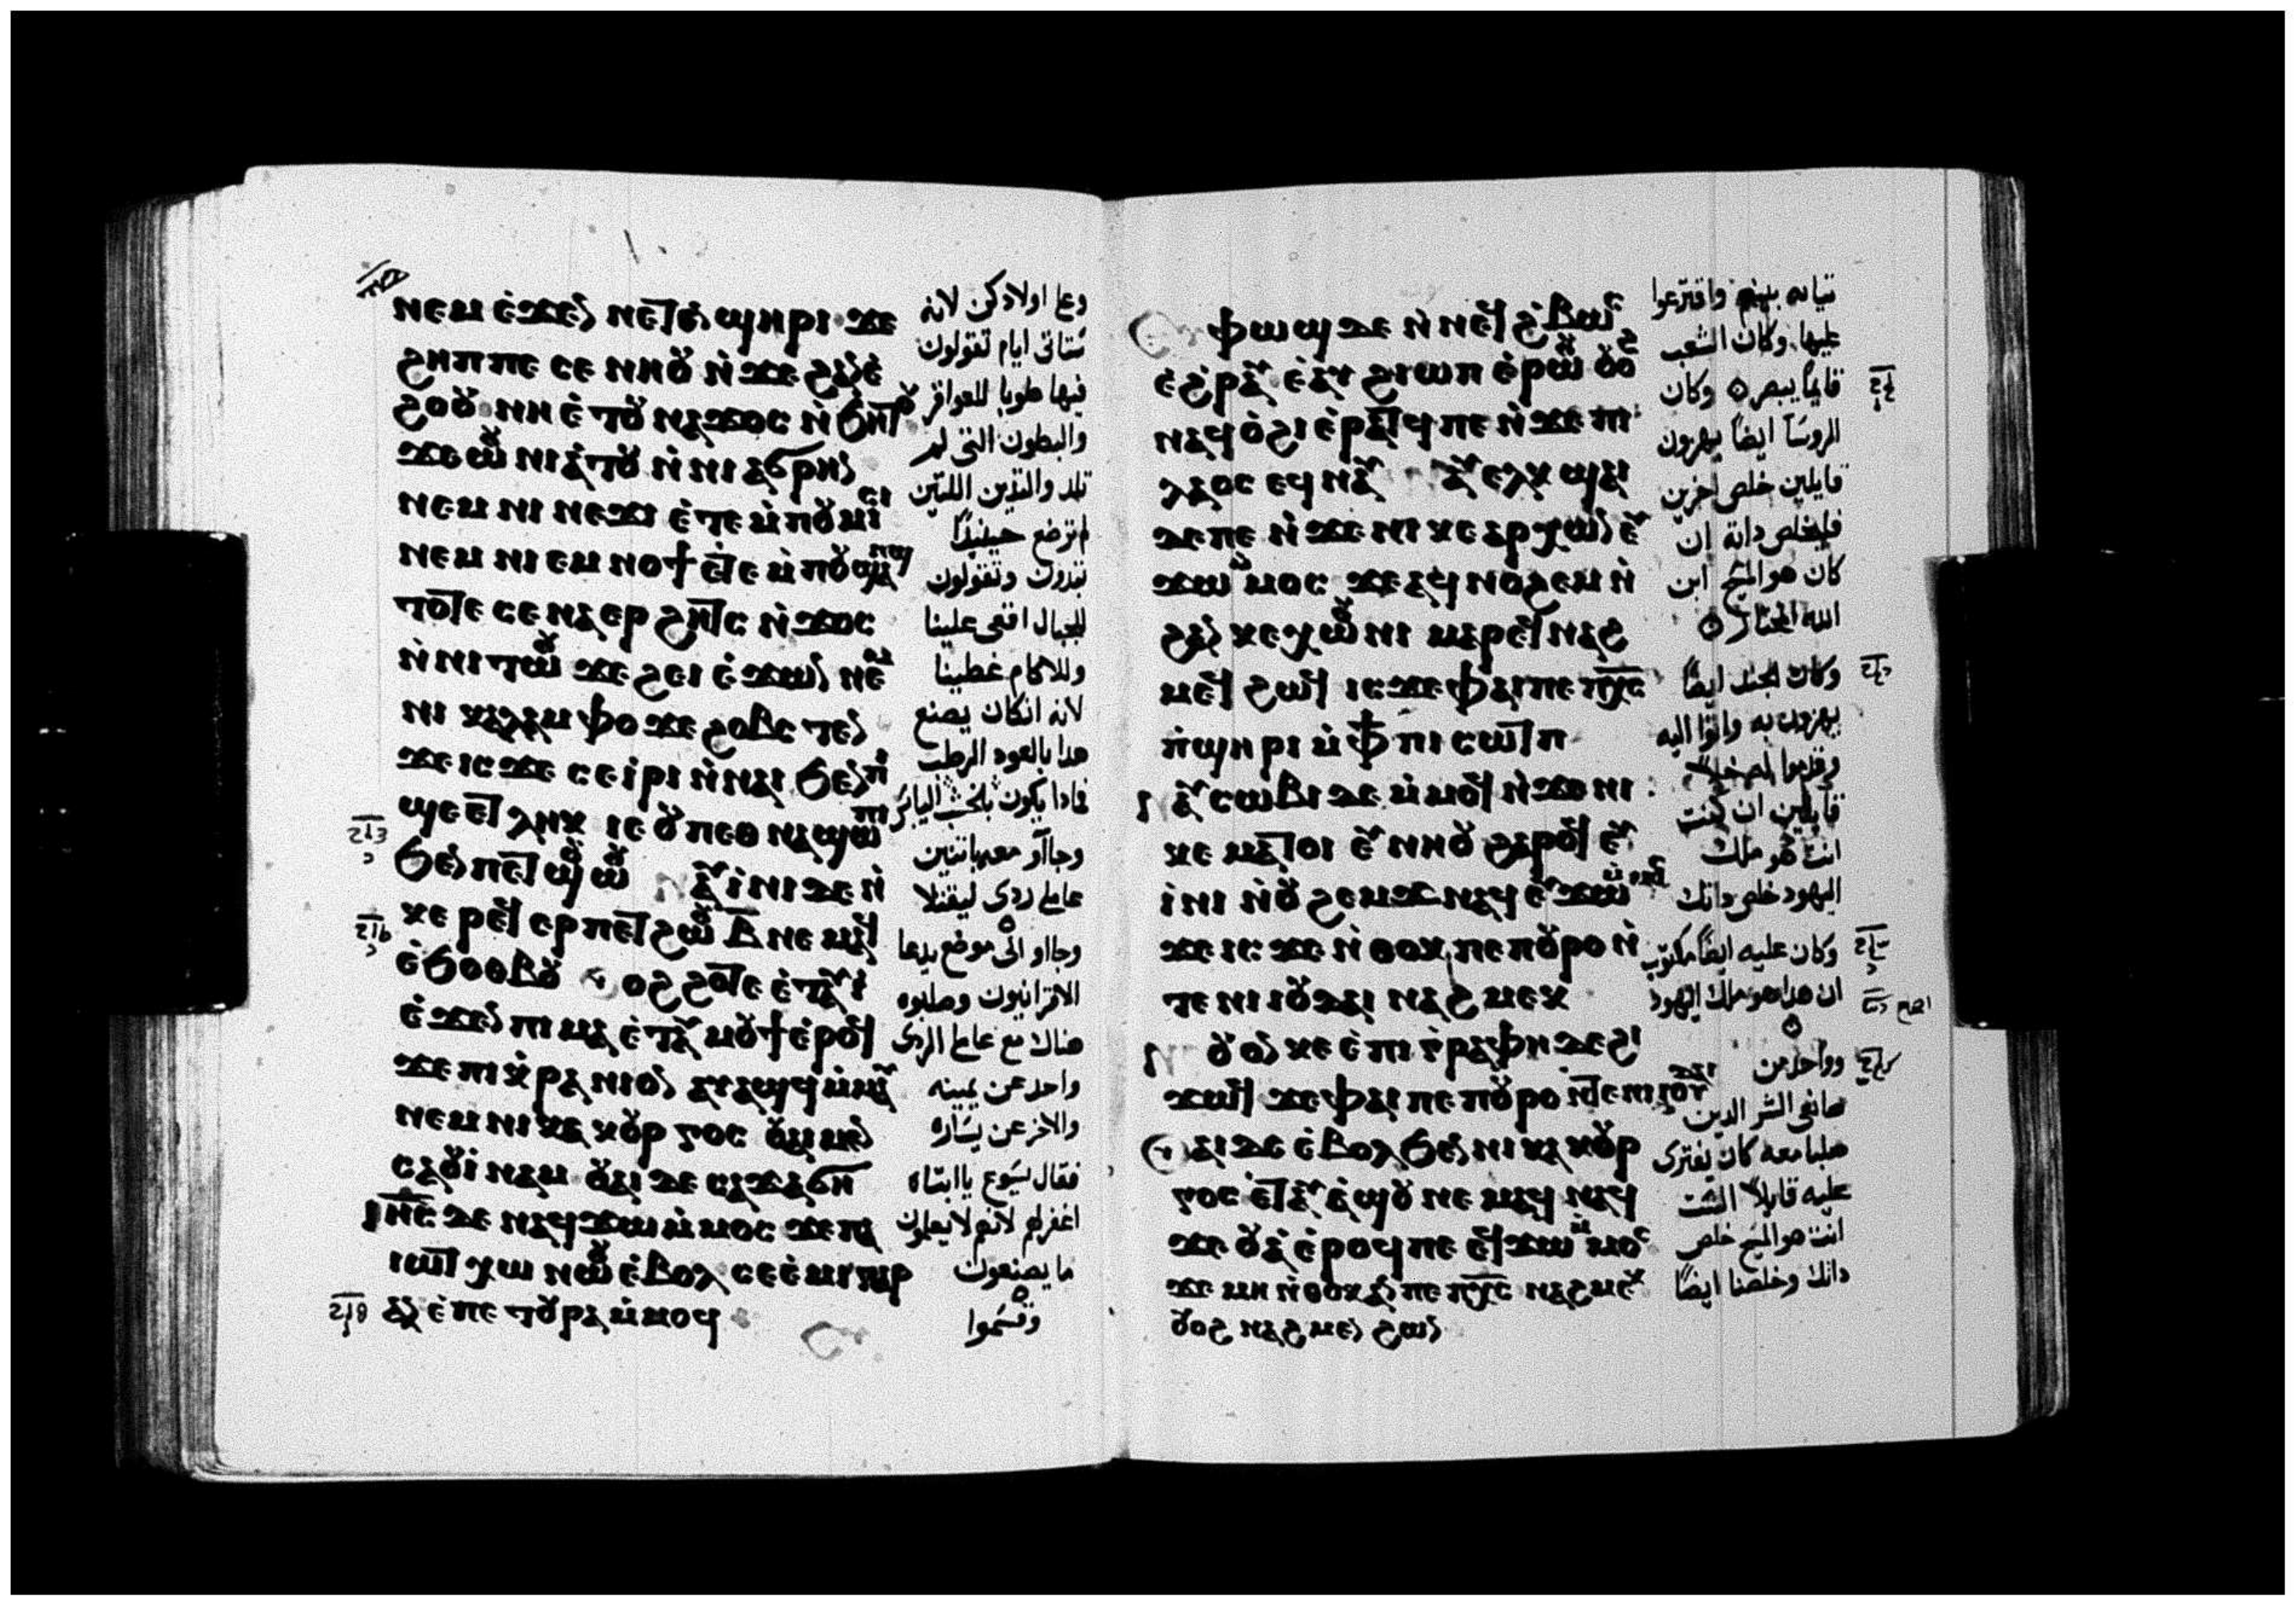 ⲛⲉⲙ ⲉ̀ϫⲉⲛ ⲛⲉⲧⲉⲛϣⲏⲣⲓ ϫⲉ
ϩⲏⲡⲡⲉ ⲥⲉ ⲛⲏⲟⲩ ⲛ̀ϫⲉ ϩⲁⲛⲉ̀
ϩⲟⲟⲩ ⲛⲏ ⲉ̀ⲧⲟⲩ ⲛⲁϫⲟⲥ ⲛ̀ϧⲏⲧⲟⲩ
ϫⲉ ⲱⲟⲩ ⲛⲓⲁ̀ⲧⲟⲩ ⲛ̀ⲛⲓ ⲁϭⲣⲏⲛ
ⲛⲉⲙ ⲛⲓ ⲛⲉϫⲓ ⲉ̀ⲧⲉ ⲙ̀ⲡⲟⲩⲙⲓⲥⲓ
ⲛⲉⲙ ⲛⲓ ⲉⲙⲛⲟϯ ⲉⲧⲉ ⲙ̀ⲡⲟⲩϣⲁⲛϣ
ⲧⲟⲧⲉ ⲥⲉⲛⲁⲉⲣϩⲏⲧⲥ ⲛ̀ϫⲟⲥ
ⲛ̀ⲛⲓⲧⲱⲟⲩ ϫⲉ ϩⲉⲓ ⲉ̀ϫⲱⲛ ⲛⲉⲙ
ⲛⲓ ⲕⲁⲗⲁⲙⲫⲟ ϫⲉ ϩⲟⲃⲥⲧⲉⲛ
ϫⲉ ⲓⲥϫⲉ ⲥⲉⲓ̀ⲣⲓ ⲛ̀ⲛⲁⲓ ϧⲉⲛⲡⲓ
ϣⲉ ⲉⲧⲗⲏⲕ ⲓⲉ ⲟⲩⲡⲉⲑⲛⲁϣⲱⲡⲓ
ϧⲉⲛ ⲡⲉⲧϣⲟⲩⲱⲟⲩ ⲁⲩⲓ̀ⲛⲓ ⲇⲉ ⲛ̀
ⲕⲉ ⲣⲉϥⲉⲣⲡⲉⲧϩⲱⲟⲩ ⲃ̅ ⲛⲉⲙⲁϥ
ⲉ̀ϧⲟⲑⲃⲟⲩ ⲟϩ ϩⲟⲧⲉ ⲉ̀ⲧⲁⲩⲓ̀
ⲉ̀ϫⲉⲛ ⲡⲓⲙⲁ ⲉ̀ⲧⲁⲩⲙⲟⲩϯ ⲉ̀ⲣⲟϥ
ϫⲉ ⲡⲓⲕ̀ⲣⲁⲛⲓⲟⲛ ⲁⲩⲁϣϥ ⲙ̀ⲙⲁⲩ
ⲛⲉⲙ ⲛⲓ ⲕⲁⲕⲟⲩⲣⲅⲟⲥ ⲟⲩⲁⲓ ⲙⲉⲛ
ⲥⲁⲟⲩⲓ̀ⲛⲁⲙ ⲟⲩⲁⲓ ⲇⲉ ⲥⲁϫⲁϭⲏ
ⲓⲏ̅ⲥ̅ ⲇⲉ ⲛⲁϥϫⲱ ⲙ̀ⲙⲟⲥ ϫⲉ ⲡⲁ
ⲓⲱⲧ ⲭⲱ ⲛⲱⲟⲩ ⲉ̀ⲃⲟⲗ ⲥⲉⲉ̀ⲙⲓ ⲅⲁⲣ
ⲁⲛ ⲉ̀ⲡⲉ ⲧⲟⲩⲣⲁ ⲙ̀ⲙⲟϥ
وعا اولادكن لانه
ستاتى ايام تقولون
فيها طوبا للعواقر
والبطون التى لم
تلد والتديين اللتين
لم ترضع حينيذا
تبدون وتقولون
للجبال اقعى علينا
وللاكام غطينا
لانه انكان يصنع
هدا بالعود الرطب
فمادا يكون بالخشب اليابس
وجاآو معه باتنين
عاملى ردى ليقتلا
وجااو الى موضع يدعا
الاقرانيون وصلبوه
هناك مع عاملى الردى
واحد عن يمينه
والاخر عن يساره
فقال يسوع ياابتاه
اغفر لهم لانهم لا يعلمون
ما يصنعون
وقسموا
ⲫⲱϣ ⲇⲉ ⲛ̀ⲛⲉϥϩ̀ⲃⲱⲥ
ⲉ̀ϩ̀ⲣⲁⲩ ⲉ̀ⲁⲩϩⲓⲱⲡ ⲉ̀ⲣⲱⲟⲩ ⲟⲩⲟϩ
ⲛⲁϥⲟ̀ϩⲓ ⲉ̀ⲣⲁⲧϥ ⲡⲉ ⲛ̀ϫⲉ ⲡⲓ
ⲗⲁⲟⲥ ⲉϥⲛⲁⲩ ⲁⲩⲉⲗⲕϣⲁⲓ
ⲇⲉ ⲡⲉ ⲛ̀ϫⲉ ⲛⲓ ⲕⲉ ⲁⲣⲭⲱⲛ ⲉⲩ
ϫⲱ ⲙ̀ⲙⲟⲥ ϫⲉ ⲁϥⲛⲟϩⲉⲙ ⲛ̀
ϩⲁⲛ ⲕⲉⲭⲱⲟⲩⲛⲓ ⲙⲁⲣⲉϥⲛⲁϩ
ⲙⲉϥ ϩⲱϥ ⲓⲥϫⲉ ⲫⲁⲓ ⲡⲉ ⲡⲭ̅ⲥ̅
ⲡ̀ϣⲏⲣⲓ ⲙ̀ⲫϯ ⲡⲓⲥⲱⲧⲡ
ⲁⲩⲥⲱⲃⲓ ⲇⲉ ⲙ̀ⲙⲟϥ ⲛ̀ϫⲉ ⲛⲓ
ⲕⲉ ⲙⲁⲧⲟⲓ ⲉⲩⲛⲏⲟⲩ ϩⲁⲣⲟϥ ⲉⲩ
ⲓ̀ⲛⲓ ⲛ̀ⲟⲩϩⲉⲙϫ ⲛⲁϥ ⲉⲩϫⲱ ⲙ̀ⲙⲟⲥ
ϫⲉ ⲓⲥϫⲉ ⲛ̀ⲑⲟⲕ ⲡⲉ ⲡⲟⲩⲣⲟ ⲛ̀
ⲧⲉ ⲛⲓ ⲓⲟⲩⲇⲁⲓ ⲛⲁϩⲙⲉⲕ
ⲟⲩⲟⲛ ⲕⲉ ⲉ̀ⲡⲓⲅ̀ⲣⲁⲫⲏ ⲇⲉ ϩⲓ
ϫⲱϥ ϫⲉ ⲫⲁⲓ ⲡⲉ ⲡⲟⲩⲣⲟ ⲛ̀ⲧⲉ ⲛⲓ ⲓⲟⲩⲇⲁⲓ
ⲟⲩⲁⲓ ⲇⲉ ⲉ̀ⲃⲟⲗ ϧⲉⲛ ⲛⲓ ⲕⲁⲕⲟⲩⲣ
ⲅⲟⲥ ⲉⲧⲁⲩⲁ̀ϣⲟⲩ ⲛⲉⲙⲁϥ ⲛⲁϥ
ϫⲉ ⲟⲩⲁ̀ ⲉ̀ⲣⲟϥ ⲡⲉ ⲉϥϫⲱ ⲙ̀ⲙⲟⲥ
ϫⲉ ⲙⲏ ⲛ̀ⲑⲟⲕ ⲁⲛ ⲡⲉ ⲡⲭ̅ⲥ̅ ⲛⲁϩⲙⲉⲕ
ⲟⲩⲟϩ ⲛⲁϩⲙⲉⲛ ϩⲱⲛ
تيابه بينهم واقترعوا
عليها. وكان الشعب
قايما يبصر وكان
الروسا ايضا يهزون
قايلين خلص اخرين
فليخلص داته ان
كان هو المسيح ابن
الله المختار
وكان الجند ايضا
يهزون به واتوا اليه
وقدموا له خلا
قايلين ان كنت
انت هو ملك
اليهود خلص داتك
وكان عليه ايضا مكتوب
ان هدا هو ملك اليهود
وواحد من
صانعى الشر الدين
صلبا معه كان يفترى
عليه قايلا الست
انت هو المسيح خلص
داتك وخلصنا ايضا